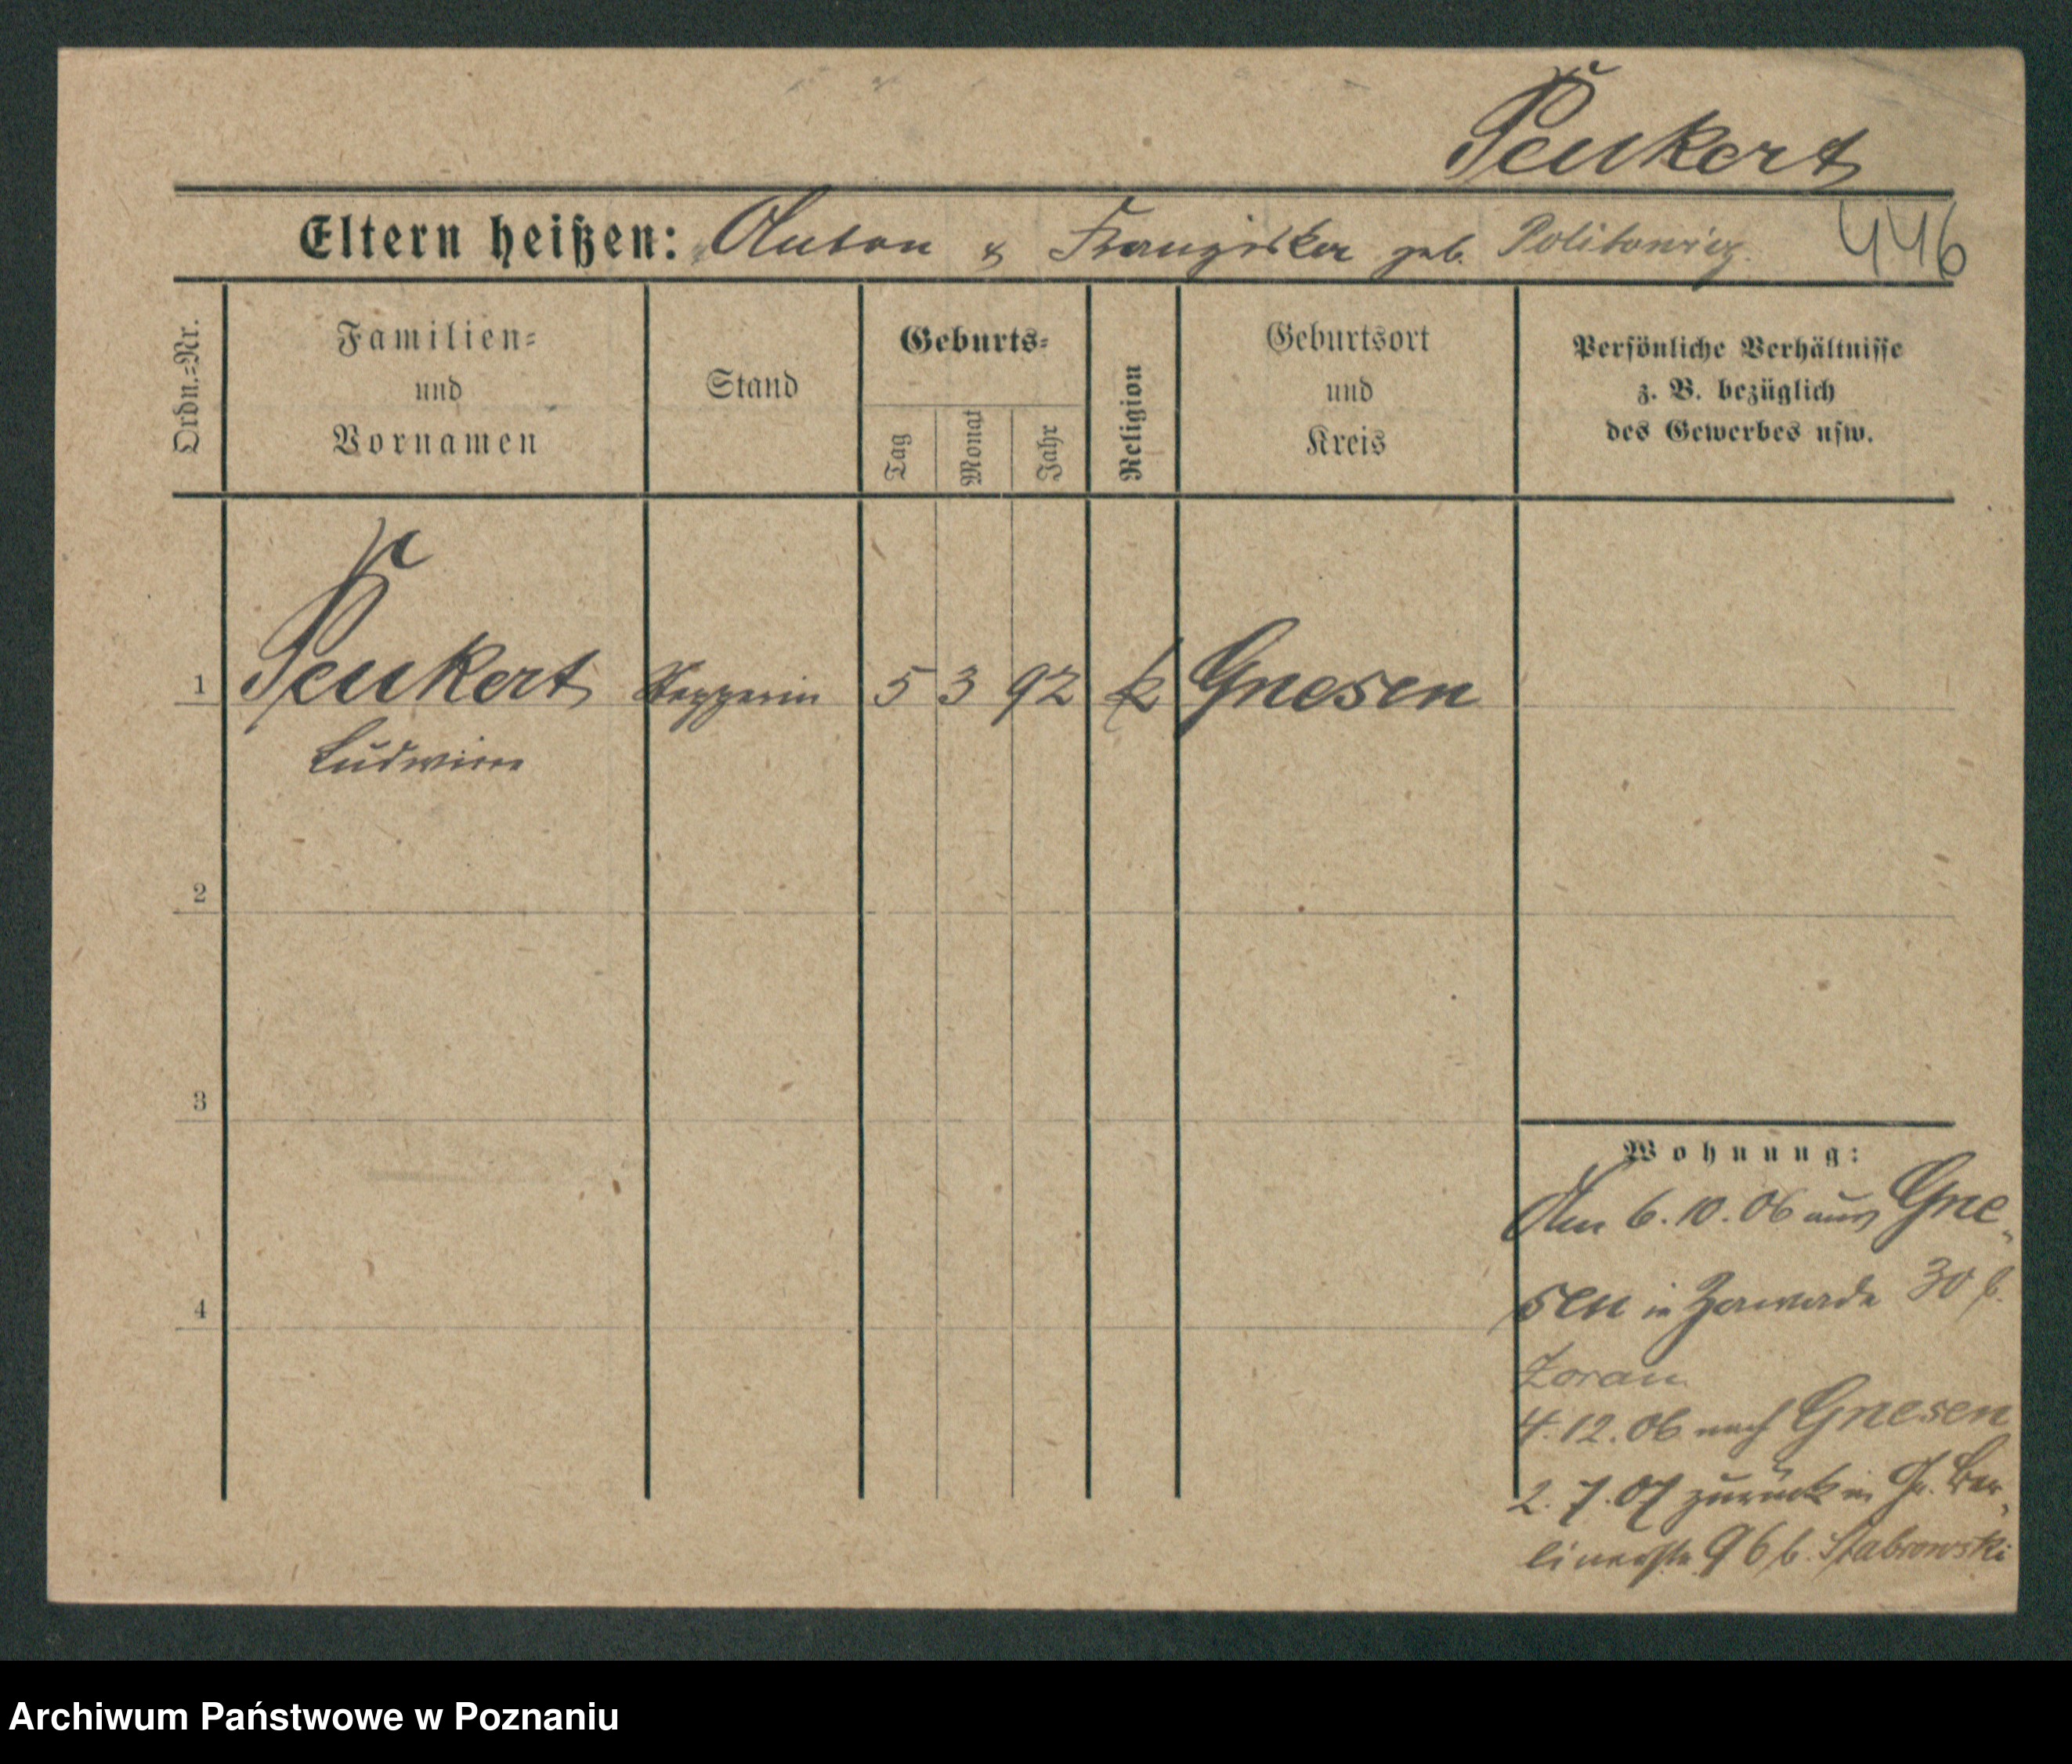 Peukert
Eltern heißen: Anton & Franziska geb. Politowicz. 446
Ordn.-Nr.
Familien-
und
Vornamen
Stand
Geburts-
Tag
Monat
Jahr
Religion
Geburtsort
und
Kreis
Persönliche Verhältnisse
z. B. bezüglich
des Gewerbes usw.
1 Peukert 5 3 92 k Gnesen
2
3
4
Wohnung:
Am 6.10.06 aus Gne-
sen in Zawade 30 b.
4.12.06 nach Gnesen
2.7.07 zurück in Gr. Ber-
linerstr 96 b. Stabrowski
Archiwum Państwowe w Poznaniu